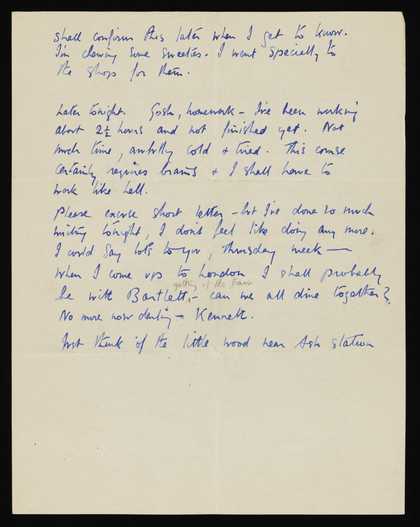 shall confirm this later when I get to know.
I'm chewing some sweeties. I went specially to
the shops for them.
Later tonight. Gosh, homework – I've been working
about 2½ hours and not finished yet. Not
much time, awfully cold & tired. This course
certainly requires brains & I shall have to
work like hell.
Please excuse short letter – but I've done so much
writing tonight, I don't feel like doing any more.
I could say lots to you, Thursday week —
When I come up to London I shall probably
getting of the train
be with Bartlett, – can we all dine together?
No more now darling – Kenneth.
Just think of the little wood near Ash station